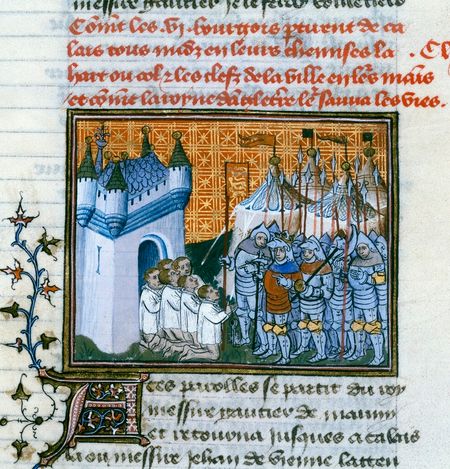 messire gautier je le feray
Com̃t les .vj. bourgois ptirent de ca
lais tous nudz en leurs chemises la
hart ou col & les clefz de la ville en lr̃s mais
et com̃t la royne dãgletre lr̃ sauua les vies.
A ces parolles se partit du roy
messire gautier de mauny
et retourna jusques a calais
la ou messire jehan de vienne latten